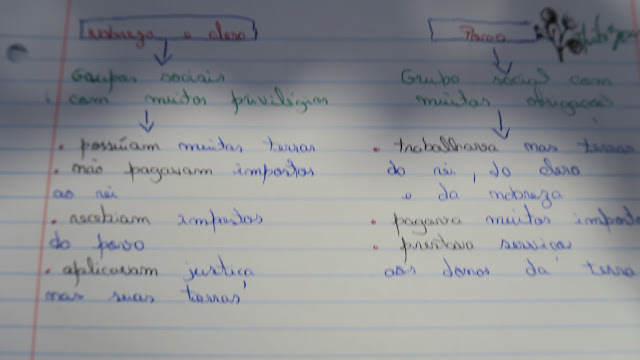 nobreza e clero
Grupos sociais
com muitos privilégios
• possuíam muitas terras
• não pagavam impostos
ao rei
• recebiam impostos
do povo
• aplicavam justiça
nas suas terras
Povo
Grupo social com
muitas obrigações
• trabalhava nas terras
do rei, do clero
e da nobreza
• pagava muitos impostos
• prestava serviço
aos donos da terra